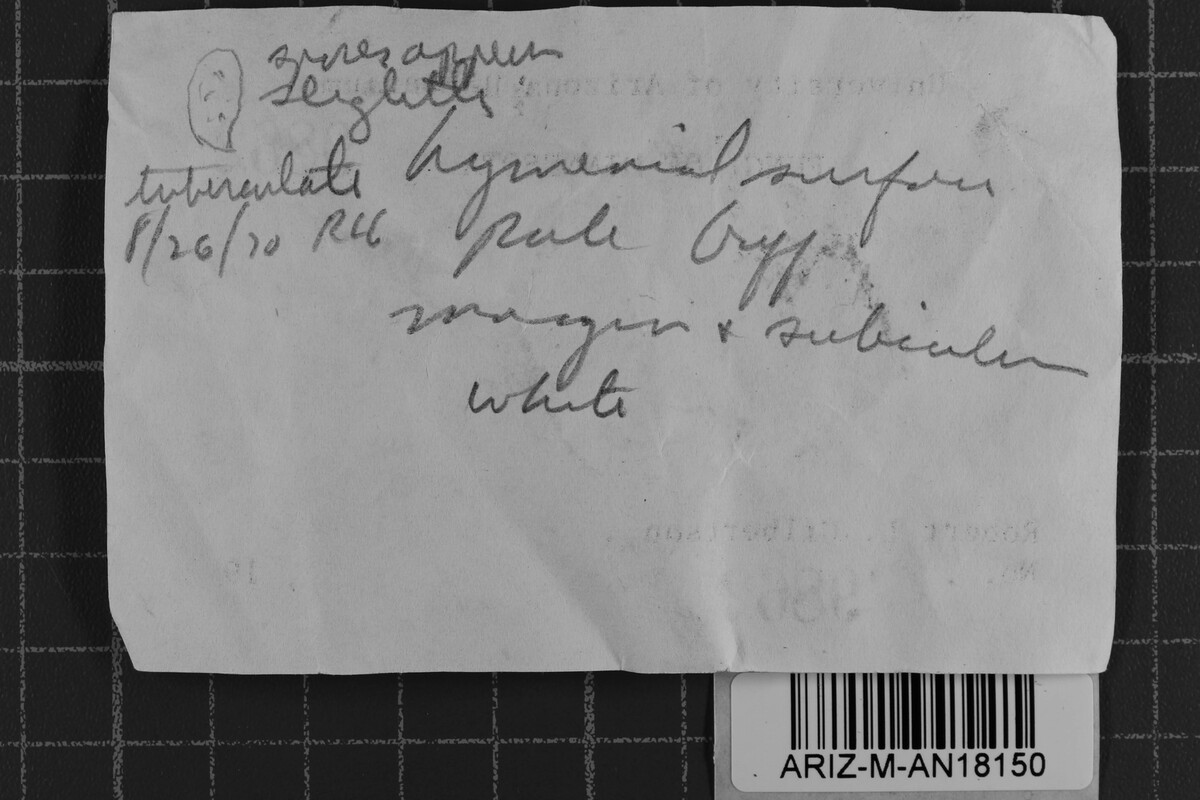 spores appear
slightly
tuberculate
8/26/70 RLG
hymenial surface
pale buff
margin & subiculum
white
ARIZ-M-AN18150